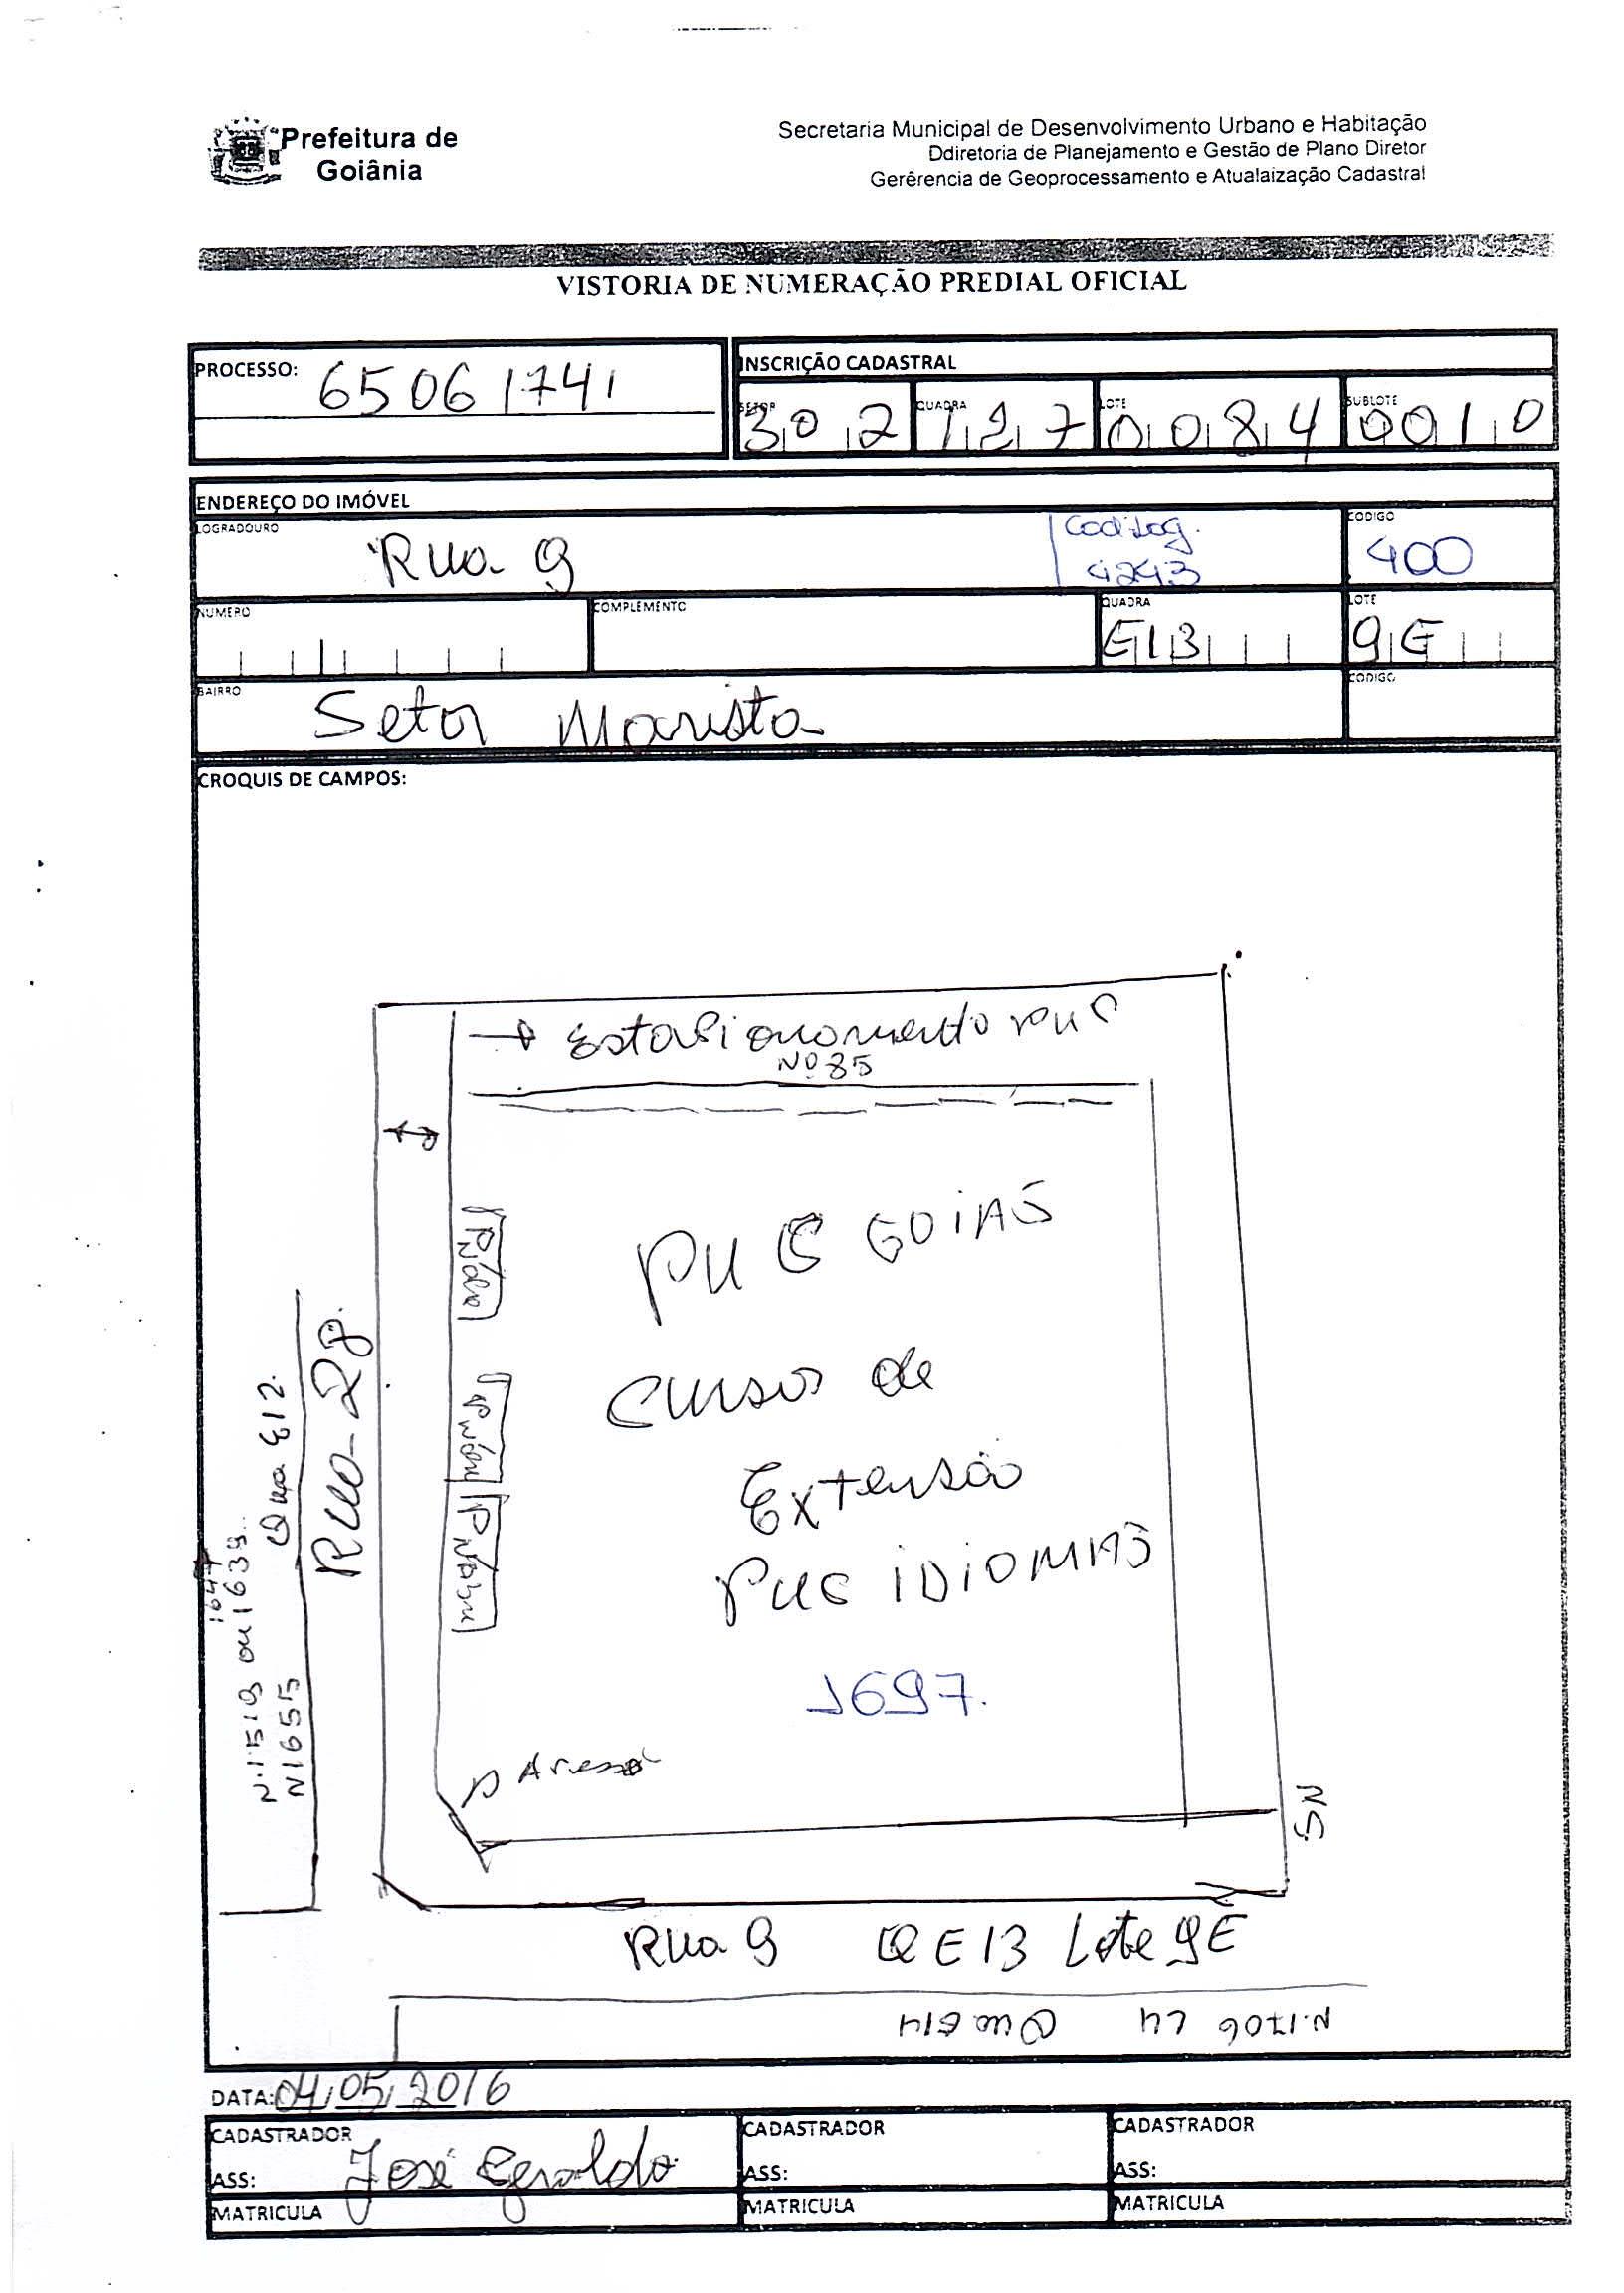 Prefeitura de
Goiânia
Secretaria Municipal de Desenvolvimento Urbano e Habitação
Ddiretoria de Planejamento e Gestão de Plano Diretor
Gerêrencia de Geoprocessamento e Atualaização Cadastral
VISTORIA DE NUMERAÇÃO PREDIAL OFICIAL
PROCESSO: 65061741
INSCRIÇÃO CADASTRAL
SETOR QUADRA LOTE SUBLOTE
302 127 0084 0010
ENDEREÇO DO IMÓVEL
LOGRADOURO CODIGO
Rua 9 Cod.Log. 4243 400
NUMERO COMPLEMENTO QUADRA LOTE
E13 9E
BAIRRO CODIGO
Setor Marista
CROQUIS DE CAMPOS:
Estacionamento PUC
Nº 85
PUC GOIÁS
Cursos de
Extensão
PUC IDIOMAS
1697.
Acesso
Rua 28.
Qua E12.
1647
N.1519 ou 1639.
N1655
SN
Rua 9 QE13 Lote 9E
N.1706 L4 Qua E14
DATA: 04/05/2016
CADASTRADOR CADASTRADOR CADASTRADOR
ASS: José Geraldo ASS: ASS:
MATRICULA MATRICULA MATRICULA